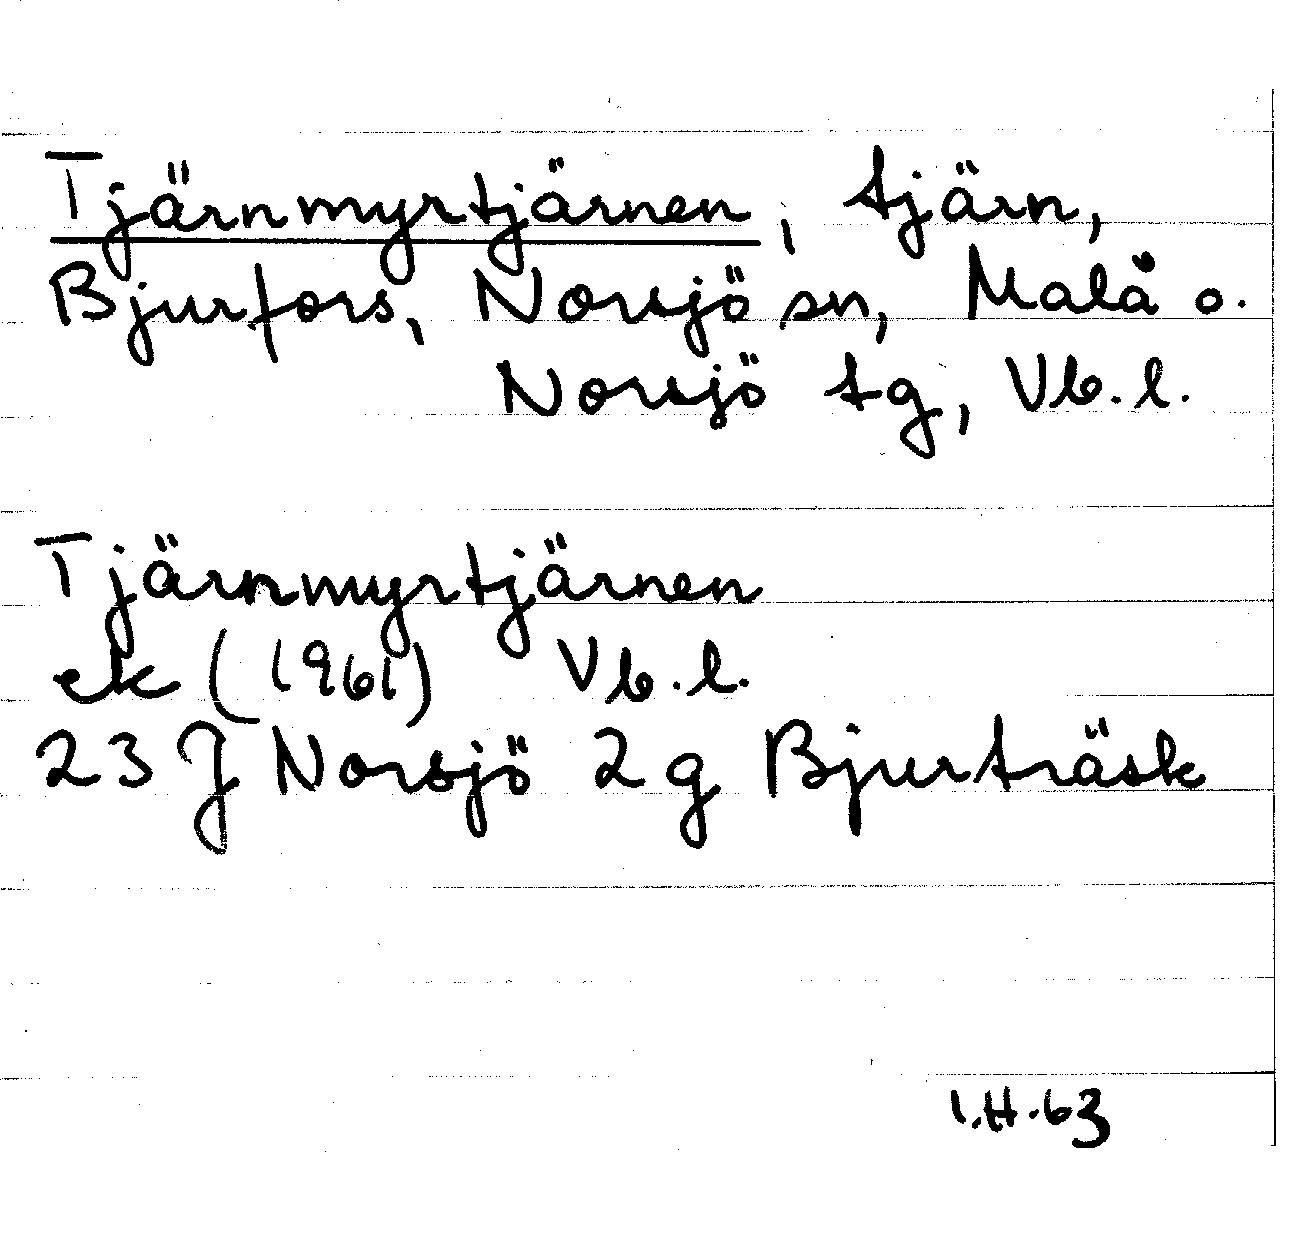 Tjärnmyrtjärnen, tjärn,
Bjurfors, Norsjö sn, Malå o.
Norsjö tg, Vb.l.
Tjärnmyrtjärnen
ek (1961) Vb.l.
23 J Norsjö 2 g Bjurträsk
I.H.63